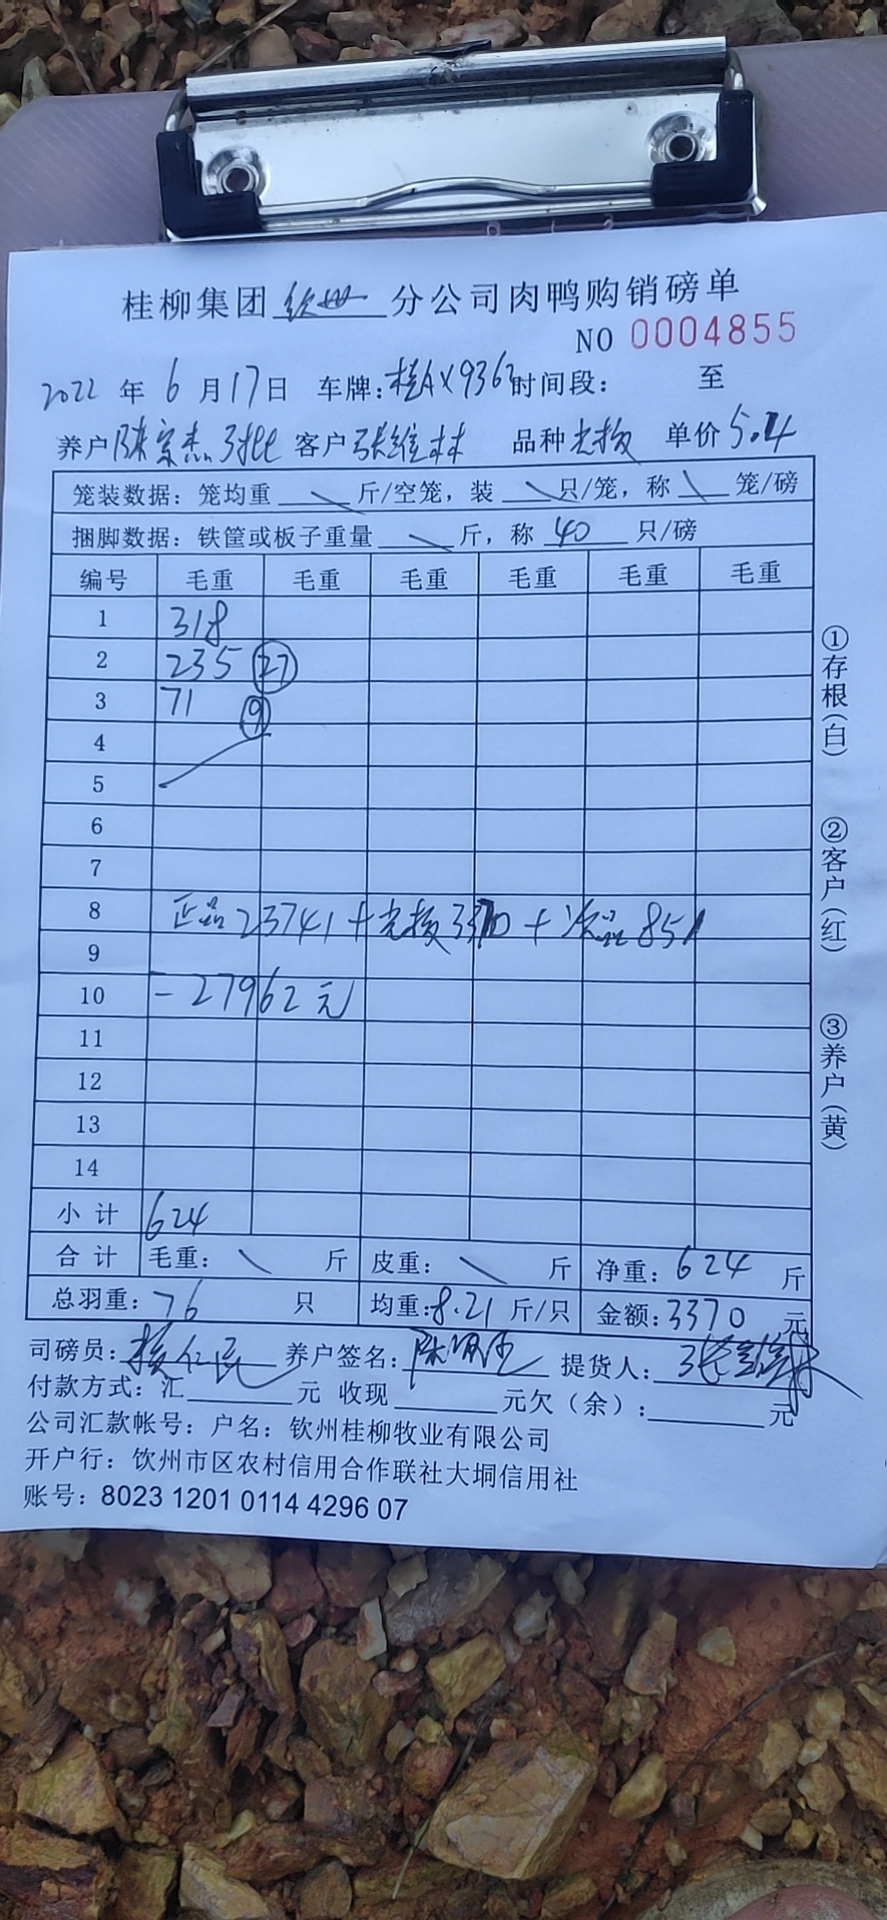 桂柳集团钦州分公司肉鸭购销磅单
NO 0004855
2022年6月17日 车牌:桂AX9362 时间段: 至
养户 陈宗杰 3批 客户 张维林 品种 单价 5.4
笼装数据:笼均重 \ 斤/空笼,装 \ 只/笼,称 \ 笼/磅
捆脚数据:铁筐或板子重量 \ 斤,称 40 只/磅
编号 毛重 毛重 毛重 毛重 毛重 毛重
1 318
2 235 27
3 71 9
4
5
6
7
8 正品23741+ 3370+次品851
9
10 =27962元
11
12
13
14
小计 624
合计 毛重: \ 斤 皮重: \ 斤 净重:624 斤
总羽重:76 只 均重:8.21 斤/只 金额:3370 元
司磅员: 养户签名: 提货人:张维林
付款方式:汇 元 收现 元欠(余): 元
公司汇款帐号:户名:钦州桂柳牧业有限公司
开户行:钦州市区农村信用合作联社大垌信用社
账号:8023 1201 0114 4296 07
①存根(白)
②客户(红)
③养户(黄)